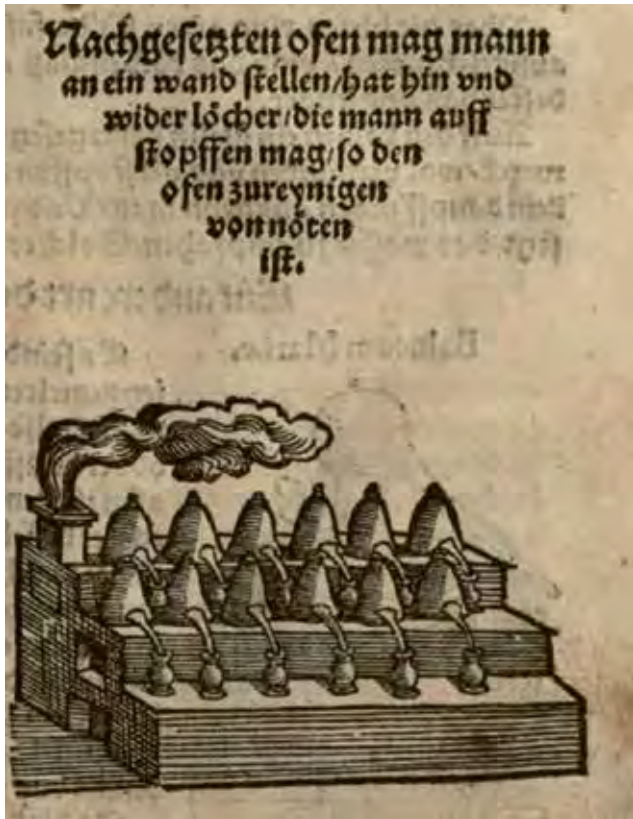 Nachgesetzten ofen mag mann
an ein wand stellen/hat hin vnd
wider löcher/die mann auff
stopffen mag/so den
ofen zureynigen
von nöten
ist.